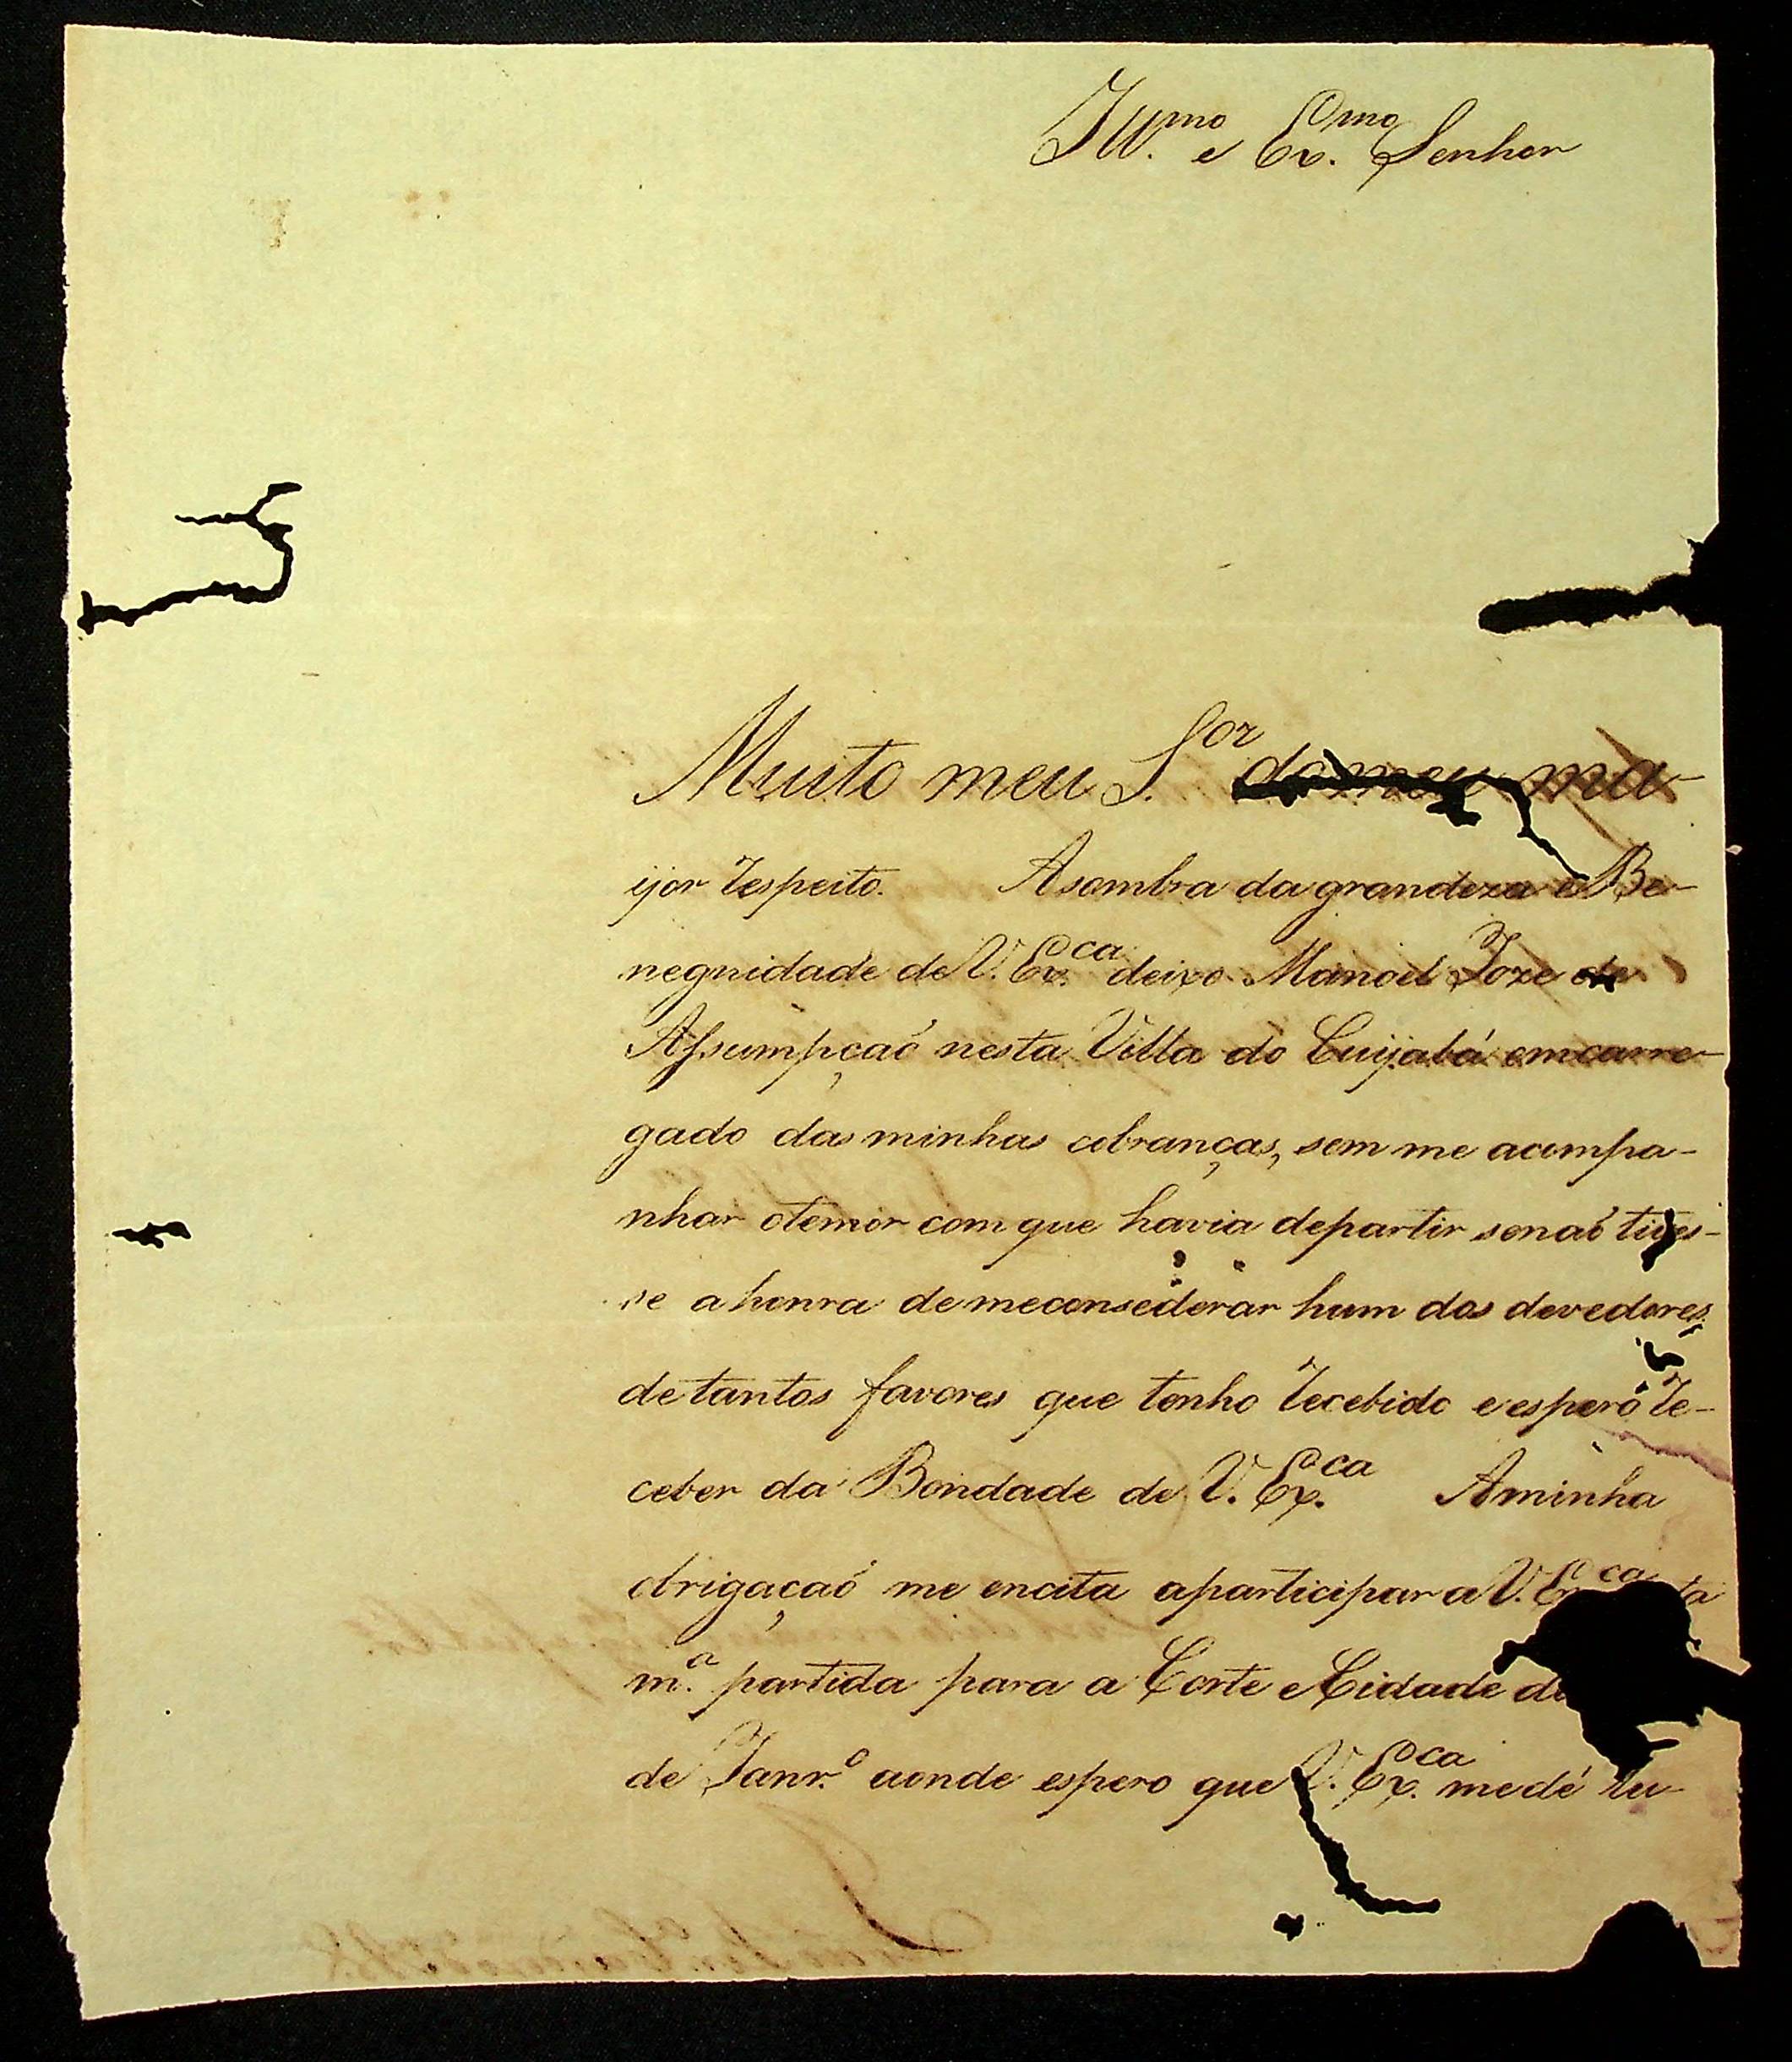 Ill.mo e Ex.mo Senhor
Muito meu S.or do meu ma-
ijor respeito. Asombra da grandeza e Be-
negnidade de V. Ex.ca deixo Manoel Joze de
Assumpçaó nesta Villa do Cuijabá emcarre-
gado das minhas cobranças, sem me acompa-
nhar otemor com que havia departir senaó tives-
se a honra de meconsederar hum dos devedores
de tantos favores que tenho recebido e espero re-
ceber da Bondade de V. Ex.ca Aminha
obrigaçaó me encita aparticipar a V. Ex.ca
m.a partida para a Corte e Cidade do
de Janr.o aonde espero que V. Ex.ca me dé lu-